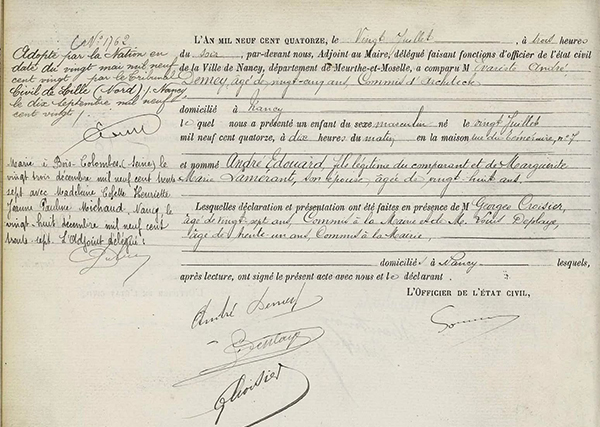 N° 1762
Adopté par la Nation en
date du vingt mai mil neuf
cent vingt par le Tribunal
Civil de Lille (Nord) Nancy
le dix Septembre mil neuf
cent vingt
Marié à Bois-Colombes (Seine) le
vingt trois décembre mil neuf cent trente
sept avec Madeleine Colette Henriette
Jeanne Pauline Michaud. Nancy, le
vingt huit décembre mil neuf cent
trente sept. L'Adjoint délégué :
L'AN MIL NEUF CENT QUATORZE, le Vingt Juillet, à trois heures
du soir, par-devant nous, Adjoint au Maire, délégué faisant fonctions d'officier de l'état civil
de la Ville de Nancy, département de Meurthe-et-Moselle, a comparu M André
Demey, âgé de vingt cinq ans, Commis d'architecte
domicilié à Nancy
lequel nous a présenté un enfant du sexe masculin né le vingt Juillet
mil neuf cent quatorze, à dix heures du matin, en la maison rue du Téméraire, n° 7
et nommé André Edouard, fils légitime du comparant et de Marguerite
Marie Lamorant, son épouse, âgée de vingt huit ans.
Lesquelles déclaration et présentation ont été faites en présence de M Georges
âgé de vingt sept ans, Commis à la Mairie et de M.
âgé de trente un ans, Commis à la Mairie,
domiciliés à Nancy lesquels,
après lecture, ont signé le présent acte avec nous et le déclarant.
L'OFFICIER DE L'ÉTAT CIVIL,
André Demey